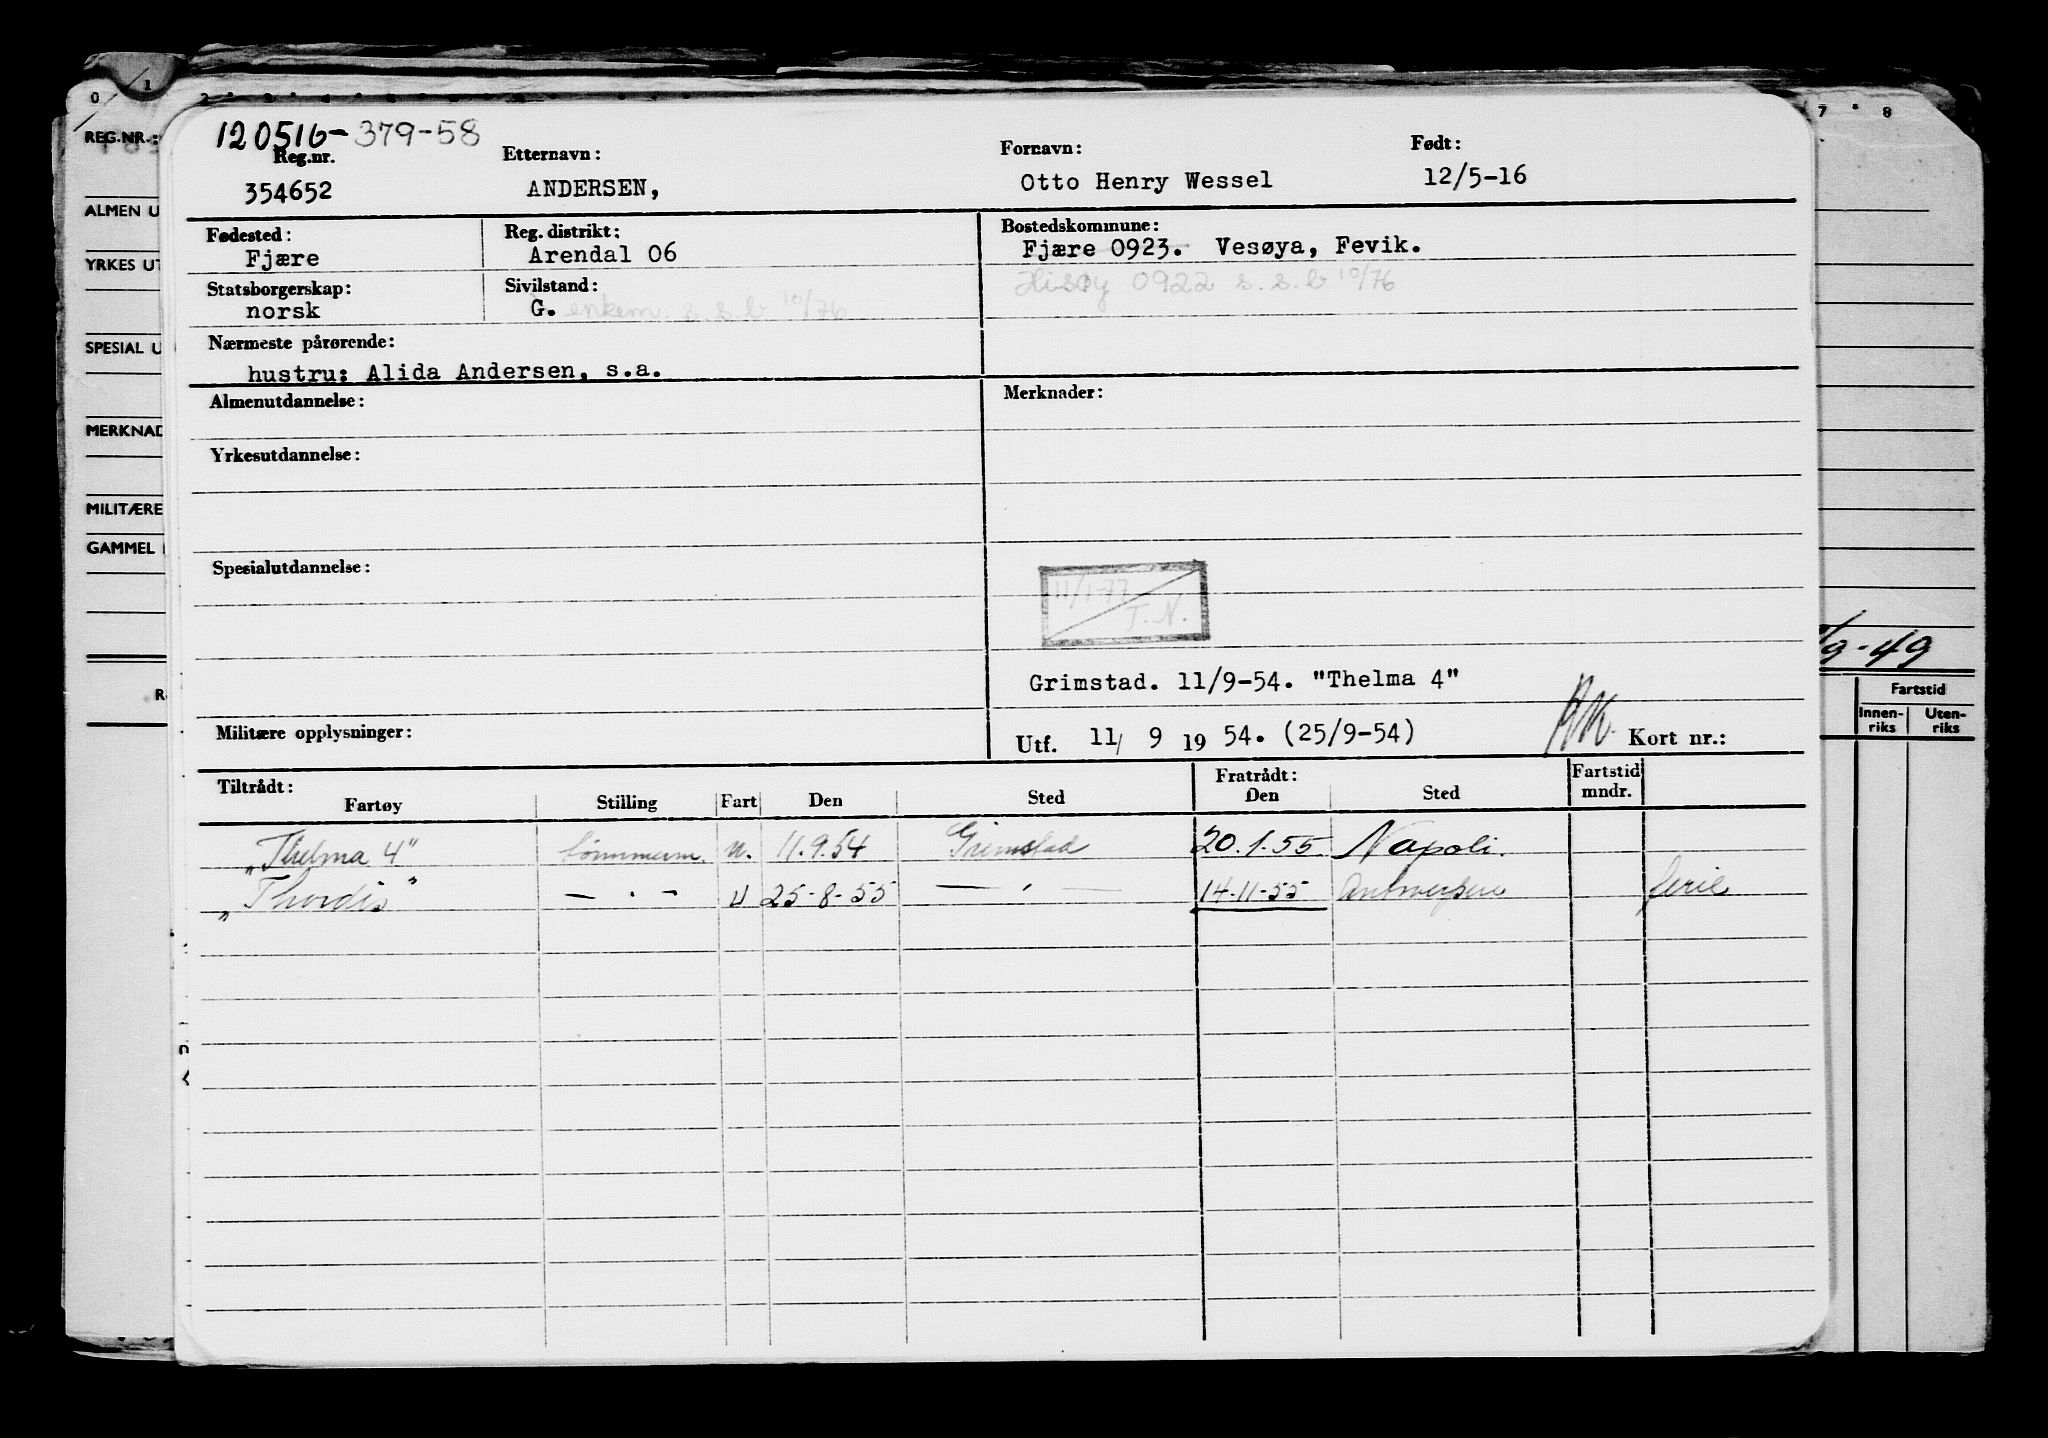 120516-379-58
Reg.nr. Etternavn: Fornavn: Født:
354652 ANDERSEN, Otto Henry Wessel 12/5-16
Fødested: Reg. distrikt: Bostedskommune:
Fjære Arendal 06 Fjære 0923. Vesøya, Fevik.
Hisøy 0922 s.s.b 10/76
Statsborgerskap: Sivilstand:
norsk G. enkem. s.s.b 10/76
Nærmeste pårørende:
hustru: Alida Andersen, s.a.
Almenutdannelse: Merknader:
Yrkesutdannelse:
Spesialutdannelse:
11/1-77
T.N.
Grimstad. 11/9-54. "Thelma 4"
Militære opplysninger: Utf. 11/ 9 19 54. (25/9-54) Kort nr.:
Tiltrådt: Fratrådt: Fartstid
Fartøy Stilling Fart Den Sted Den Sted mndr.
"Thelma 4" tømmerm. u. 11.9.54 Grimstad 20.1.55 Napoli.
"Thordis" — . — U 25-8-55 — . — 14-11-55 Antwerpen ferie
0 1 2 3 4
REG.NR.:
ALMEN U
YRKES UT
SPESIAL U
MERKNAD
MILITÆRE
GAMMEL
7 8
/9-49
Fartstid
Innen-
riks
Uten-
riks